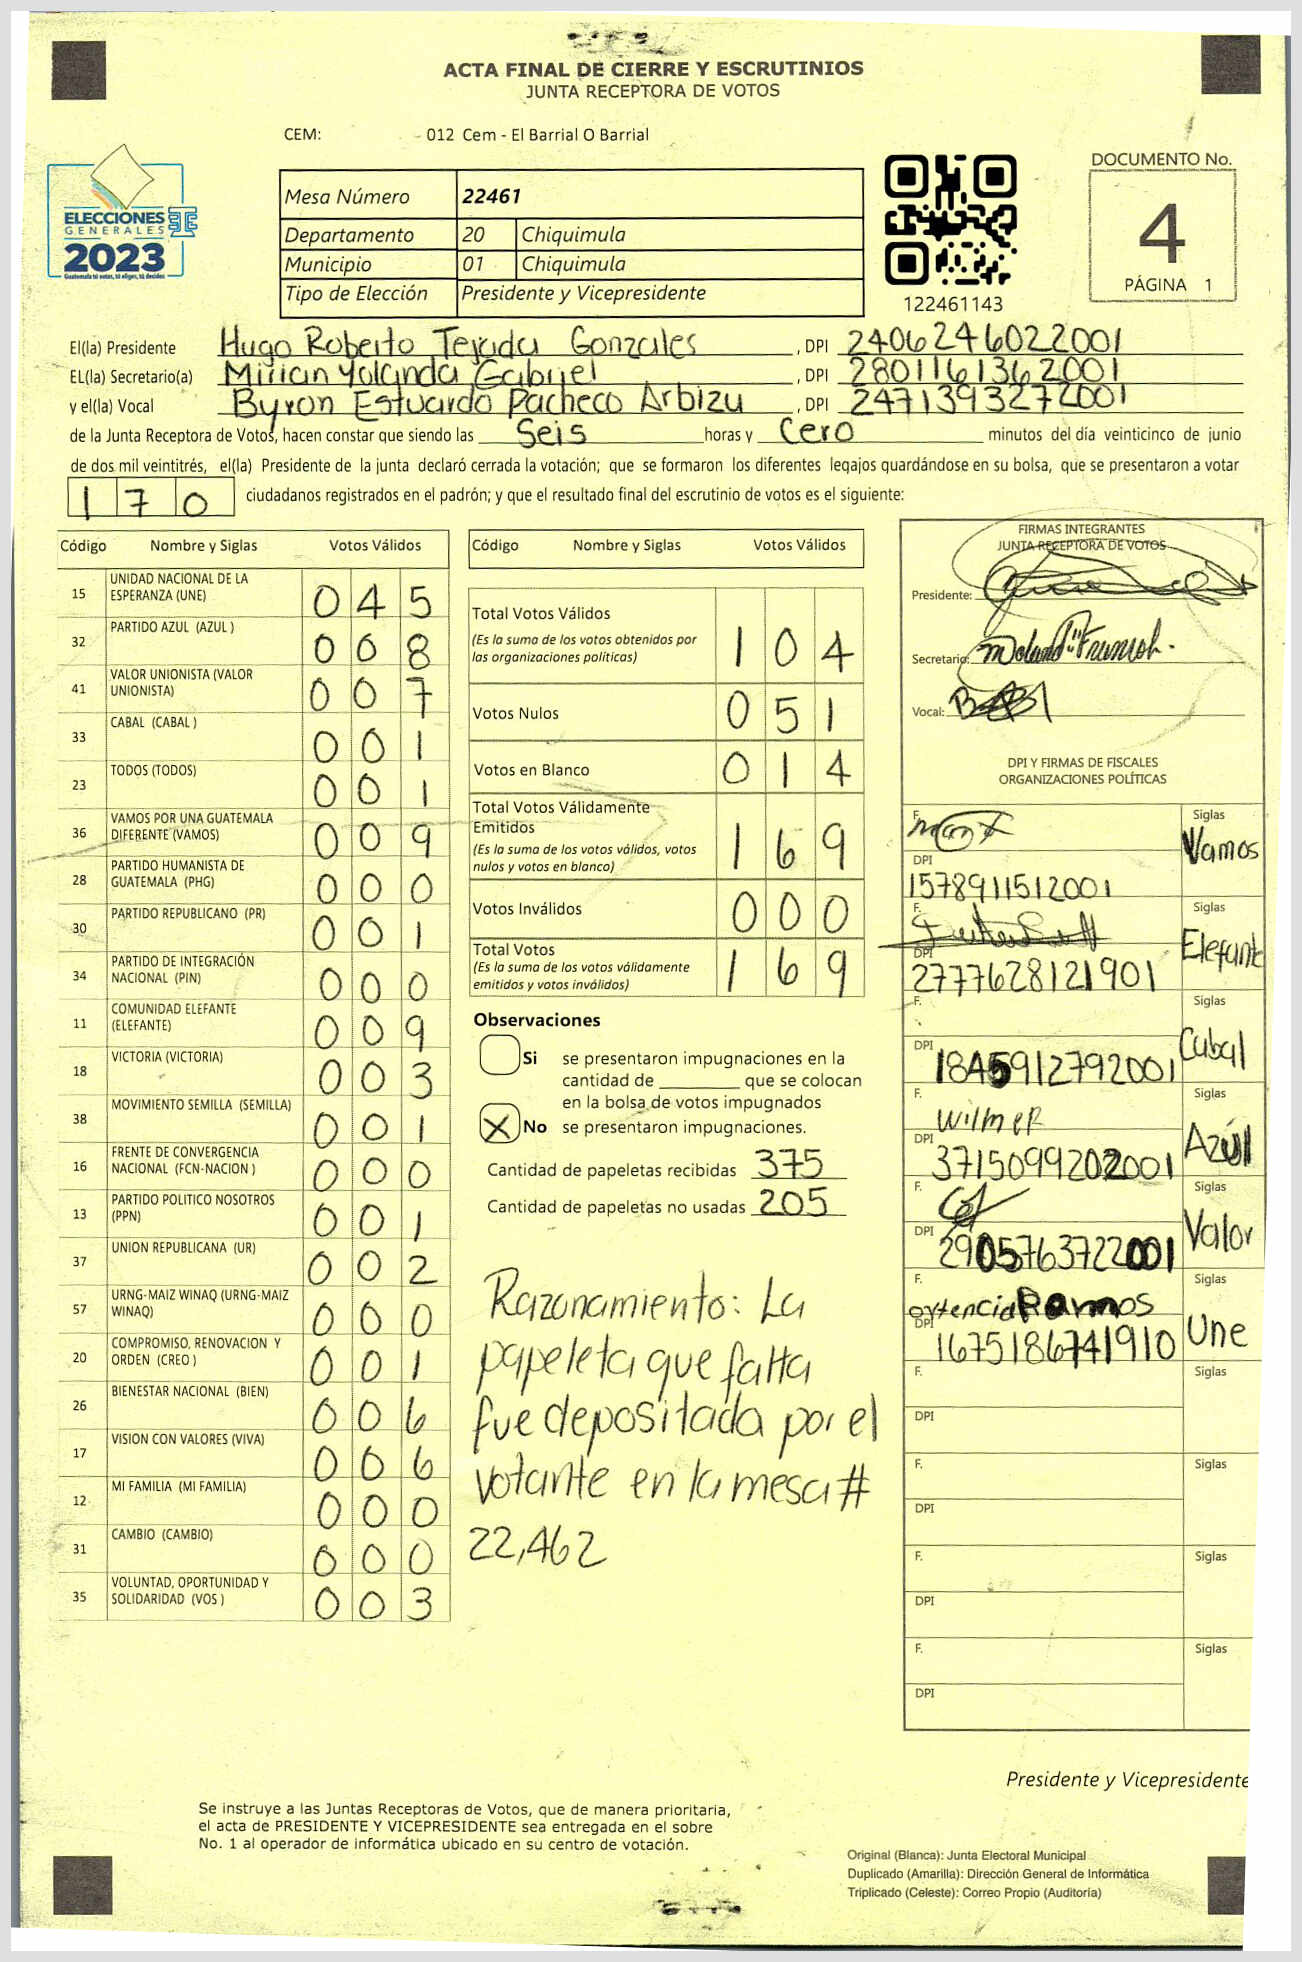 ACTA FINAL DE CIERRE Y ESCRUTINIOS
JUNTA RECEPTORA DE VOTOS
CEM: 012 Cem - El Barrial O Barrial
ELECCIONES
GENERALES
2023
Guatemala tú votas, tú eliges, tú decides
Mesa Número 22461
Departamento 20 Chiquimula
Municipio 01 Chiquimula
Tipo de Elección Presidente y Vicepresidente
122461143
DOCUMENTO No.
4
PÁGINA 1
El(la) Presidente Hugo Roberto Tejada Gonzales, DPI 2406246022001
EL(la) Secretario(a) Mirian Yolanda Gabriel, DPI 2801161362001
y el(la) Vocal Byron Estuardo Pacheco Arbizu, DPI 2471393272001
de la Junta Receptora de Votos, hacen constar que siendo las Seis horas y Cero minutos del día veinticinco de junio
de dos mil veintitrés, el(la) Presidente de la junta declaró cerrada la votación; que se formaron los diferentes legajos guardándose en su bolsa, que se presentaron a votar
170 ciudadanos registrados en el padrón; y que el resultado final del escrutinio de votos es el siguiente:
Código Nombre y Siglas Votos Válidos
15 UNIDAD NACIONAL DE LA ESPERANZA (UNE) 045
32 PARTIDO AZUL (AZUL ) 008
41 VALOR UNIONISTA (VALOR UNIONISTA) 007
33 CABAL (CABAL ) 001
23 TODOS (TODOS) 001
36 VAMOS POR UNA GUATEMALA DIFERENTE (VAMOS) 009
28 PARTIDO HUMANISTA DE GUATEMALA (PHG) 000
30 PARTIDO REPUBLICANO (PR) 001
34 PARTIDO DE INTEGRACIÓN NACIONAL (PIN) 000
11 COMUNIDAD ELEFANTE (ELEFANTE) 009
18 VICTORIA (VICTORIA) 003
38 MOVIMIENTO SEMILLA (SEMILLA) 001
16 FRENTE DE CONVERGENCIA NACIONAL (FCN-NACION ) 000
13 PARTIDO POLITICO NOSOTROS (PPN) 001
37 UNION REPUBLICANA (UR) 002
57 URNG-MAIZ WINAQ (URNG-MAIZ WINAQ) 000
20 COMPROMISO, RENOVACION Y ORDEN (CREO ) 001
26 BIENESTAR NACIONAL (BIEN) 006
17 VISION CON VALORES (VIVA) 006
12 MI FAMILIA (MI FAMILIA) 000
31 CAMBIO (CAMBIO) 000
35 VOLUNTAD, OPORTUNIDAD Y SOLIDARIDAD (VOS ) 003
Código Nombre y Siglas Votos Válidos
Total Votos Válidos 104
(Es la suma de los votos obtenidos por
las organizaciones políticas)
Votos Nulos 051
Votos en Blanco 014
Total Votos Válidamente
Emitidos 169
(Es la suma de los votos válidos, votos
nulos y votos en blanco)
Votos Inválidos 000
Total Votos 169
(Es la suma de los votos válidamente
emitidos y votos inválidos)
Observaciones
Si se presentaron impugnaciones en la
cantidad de ________ que se colocan
en la bolsa de votos impugnados
X No se presentaron impugnaciones.
Cantidad de papeletas recibidas 375
Cantidad de papeletas no usadas 205
Razonamiento: La
papeleta que falta
fue depositada por el
votante en la mesa #
22,462
FIRMAS INTEGRANTES
JUNTA RECEPTORA DE VOTOS
Presidente:
Secretario:
Vocal:
DPI Y FIRMAS DE FISCALES
ORGANIZACIONES POLÍTICAS
F. Siglas Vamos
DPI 1578911512001
F. Siglas Elefante
DPI 2777628121901
F. Siglas Cabal
DPI 1845912792001
F. Wilmer Siglas Azúl
DPI 3715099202001
F. Siglas Valor
DPI 2905763722001
F. ortencia Ramos Siglas Une
DPI 1675186741910
F. Siglas
DPI
F. Siglas
DPI
F. Siglas
DPI
F. Siglas
DPI
Presidente y Vicepresidente
Se instruye a las Juntas Receptoras de Votos, que de manera prioritaria,
el acta de PRESIDENTE Y VICEPRESIDENTE sea entregada en el sobre
No. 1 al operador de informática ubicado en su centro de votación.
Original (Blanca): Junta Electoral Municipal
Duplicado (Amarilla): Dirección General de Informática
Triplicado (Celeste): Correo Propio (Auditoría)